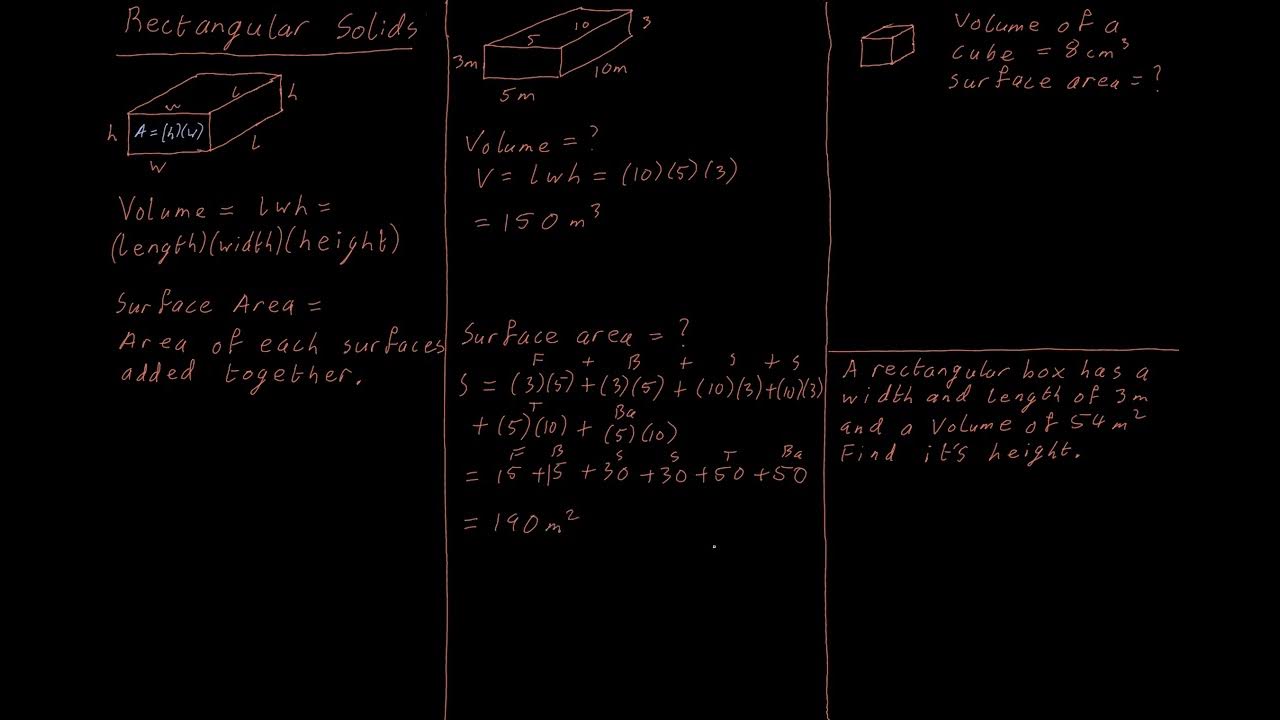 Rectangular Solids
w
l
h
h
A=(h)(w)
l
w
Volume = lwh =
(length)(width)(height)
Surface Area =
Area of each surfaces
added together.
10
3
5
3m
10m
5m
Volume = ?
V = lwh = (10)(5)(3)
= 150 m³
Surface area = ?
F + B + S + S
S = (3)(5) + (3)(5) + (10)(3)+(10)(3)
T Ba
+ (5)(10) + (5)(10)
F B S S T Ba
= 15 +15 +30 +30 +50 +50
= 190 m²
Volume of a
cube = 8cm³
surface area = ?
A rectangular box has a
width and length of 3m
and a volume of 54m²
Find it's height.